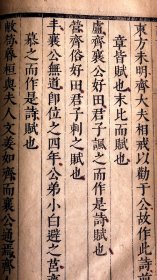 東方未明齊大夫相戒以勤于公故作此詩首
章皆賦也末比而賦也
盧齊襄公好田君子諷之而作是詩賦也
營齊俗好田君子刺之賦也
丰襄公無道即位之四年公弟小白避之莒齊
慕之而作是詩賦也
敝笱魯桓與夫人文姜如齊而襄公通焉齊